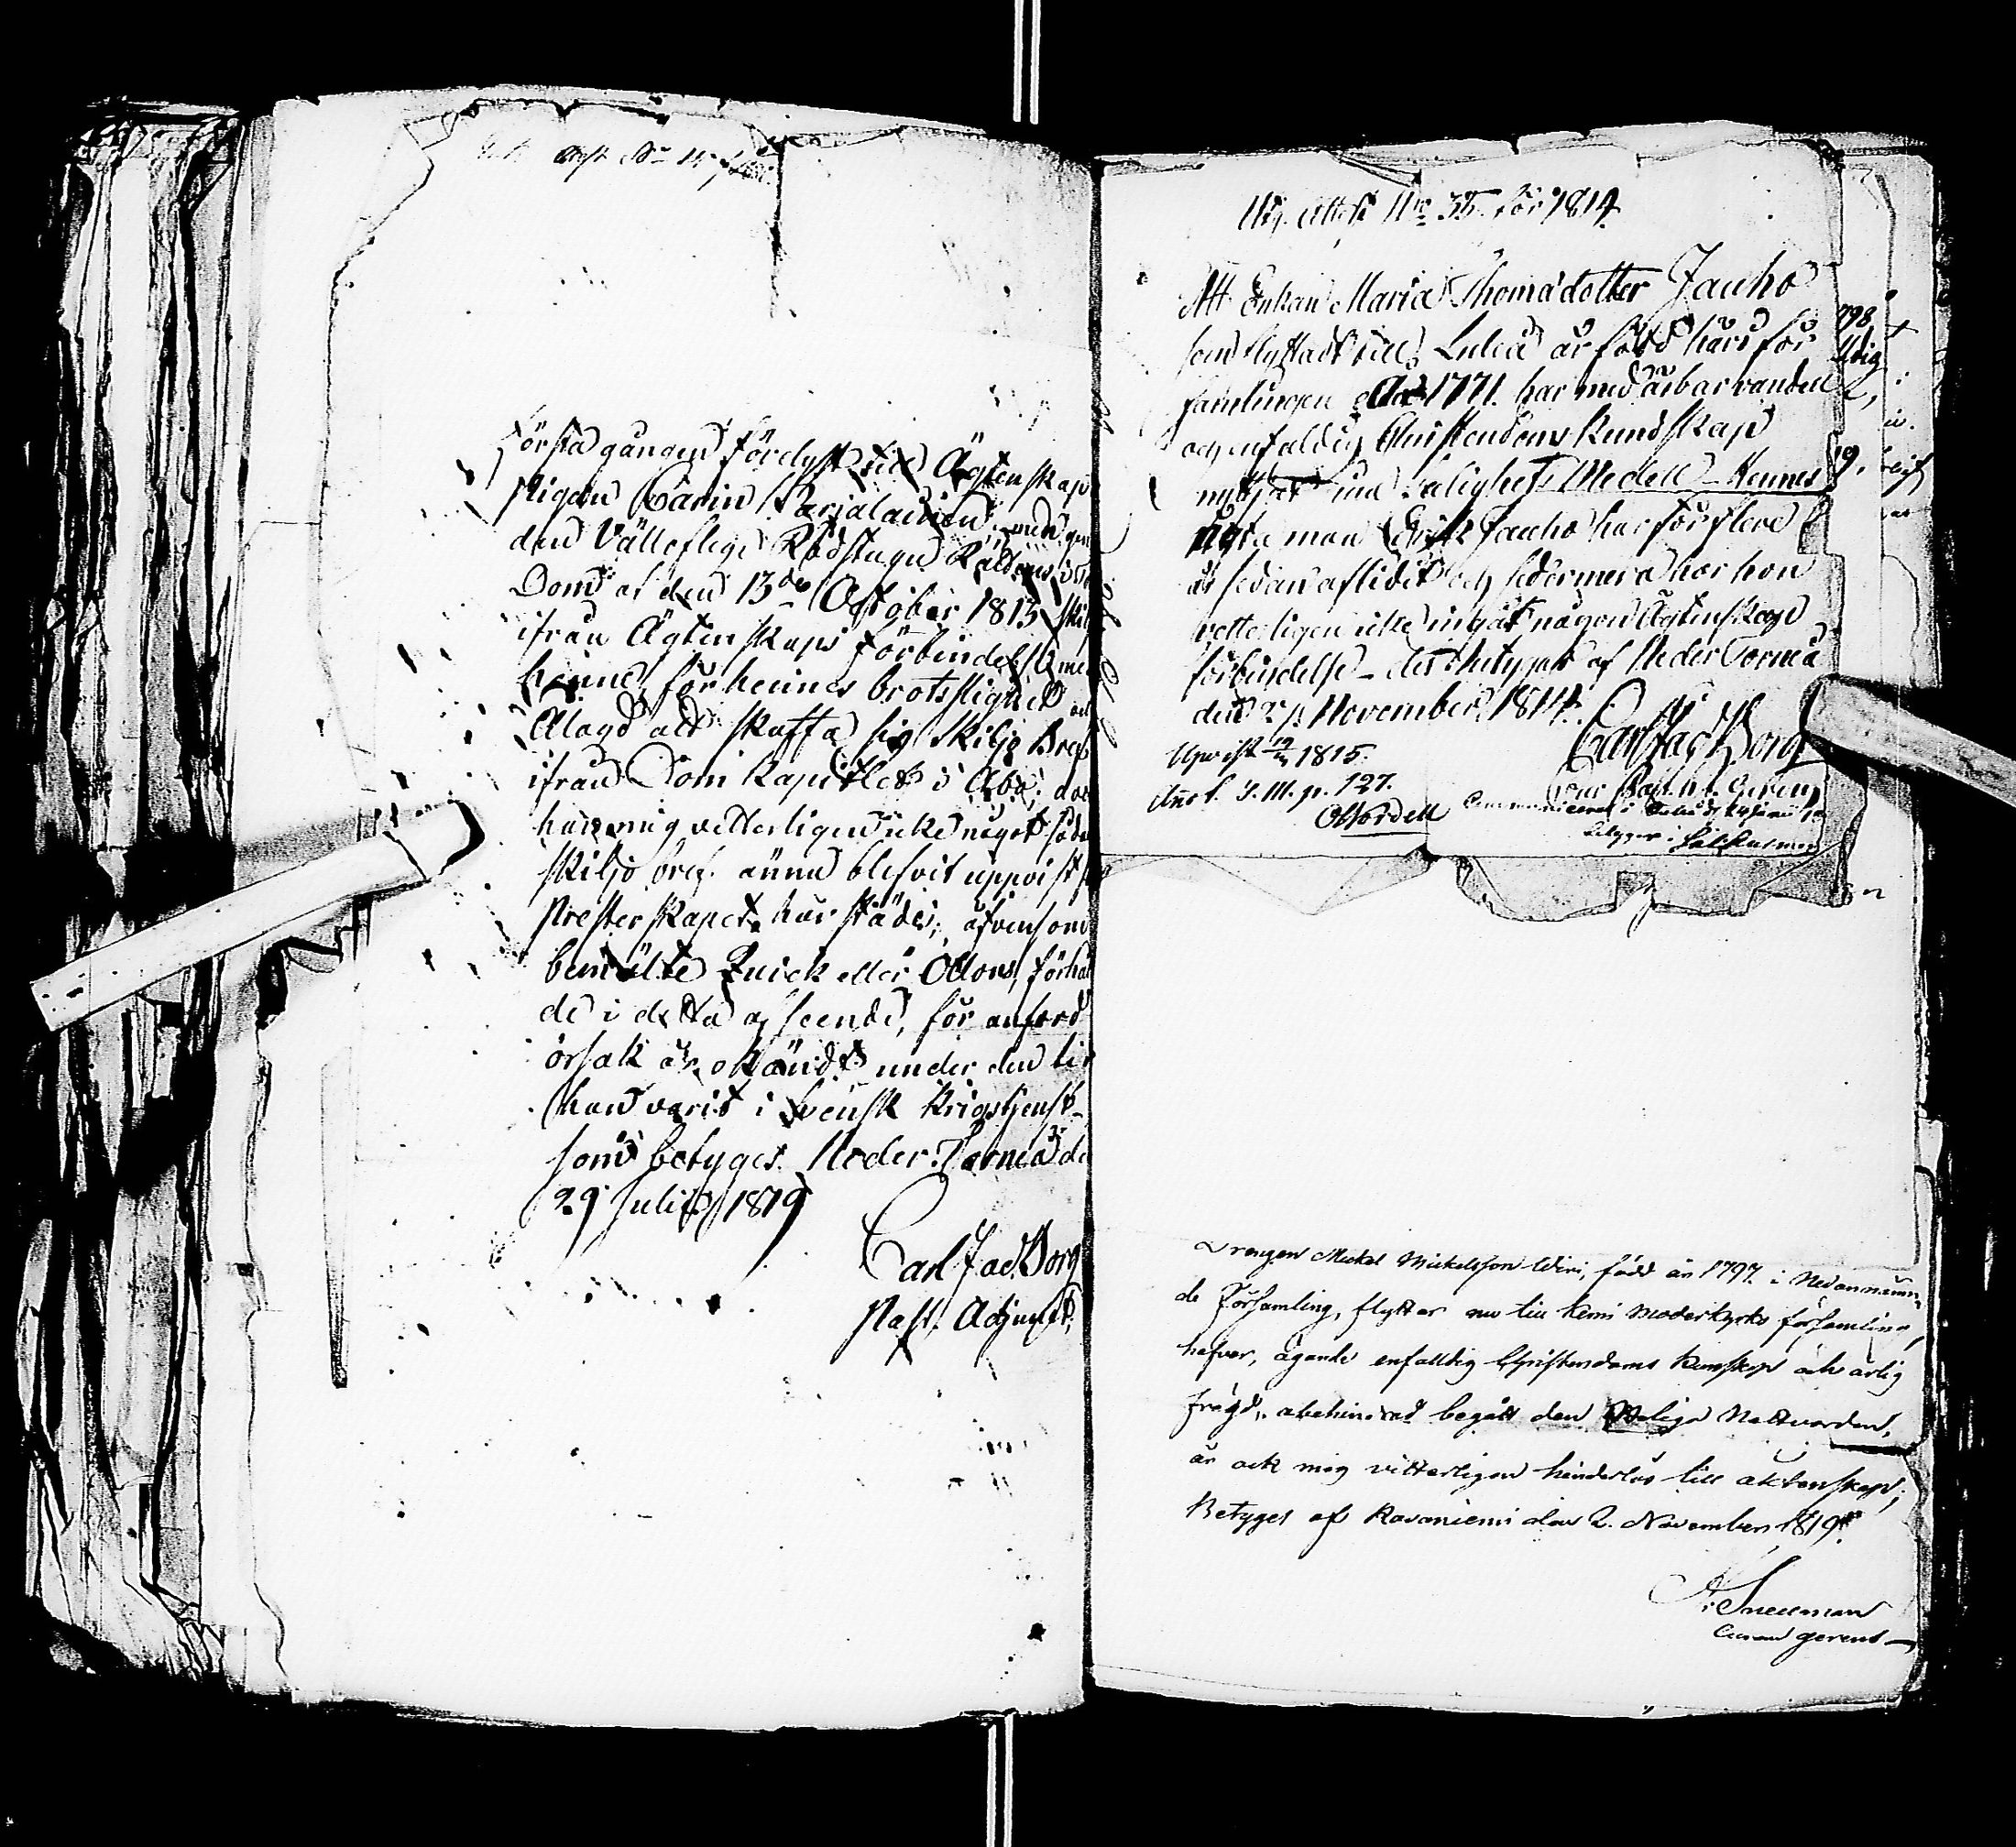 första gången förelyst till Ägtenskap
Pigan Carin Karjalainen, men gen
den Vällofliga Rådstugu Rättens i
Dom af den 13de October 1813 skil
ifrån Ägtenskaps förbindelse me
henne, för hennes brottslighet
Ålagd att skaffa sig Skiljo Bref
ifrån Dom Kapitlet i Åbo; doc
har mig vetterligen icke något såda
skiljobref ännu blifvit uppvist
Presterskapet här städes, äfvensom
bemälte Quick eller Ollons, förhå
de i detta afseende, för anförd
orsak är okändt under den ti
han varit i Svensk Krigstjenst
som betyges. Neder Torneå de
29 Julii 1819
Carl Jac. Borg
Past. Adjunct.
Utg. Attest No 35. för 1814.
Att Enkan Maria Thomadotter Jauho
som flyttadt till Luleå är född härs för
samlingen År 1771. har med ärbar vandel
och enfaldig Christendoms Kundskap
nyttjat sina Salighets Medell - Hennes
ägta man Erik Jauho har för flere
år sedan aflidit och sedermera har hon
vetterligen icke ingåt någon Ägtenskaps
förbindelse - det betygas af Neder Torneå
den November 1814.
Carl Jac Borg
Upvist 1815.
Annot. S. III. p. 127.
O Nordell
Communicerat i Luleå
betygar
798
ldig
19.
Drengen Mickel Mickelsson Wiri, född år 1797. i Nedannämn
de Församling, flyttar nu till Kemi Moderkyrko församling,
hafver, ägande enfalldig Christendoms kunskap och ärlig
frägd, obehindrad begått den Heliga Nattvarden,
är ock mig vitterligen hinderlös till äktenskap;
Betyges af Rovaniemi den 2. November 1819.
Snellman
Curam gerens